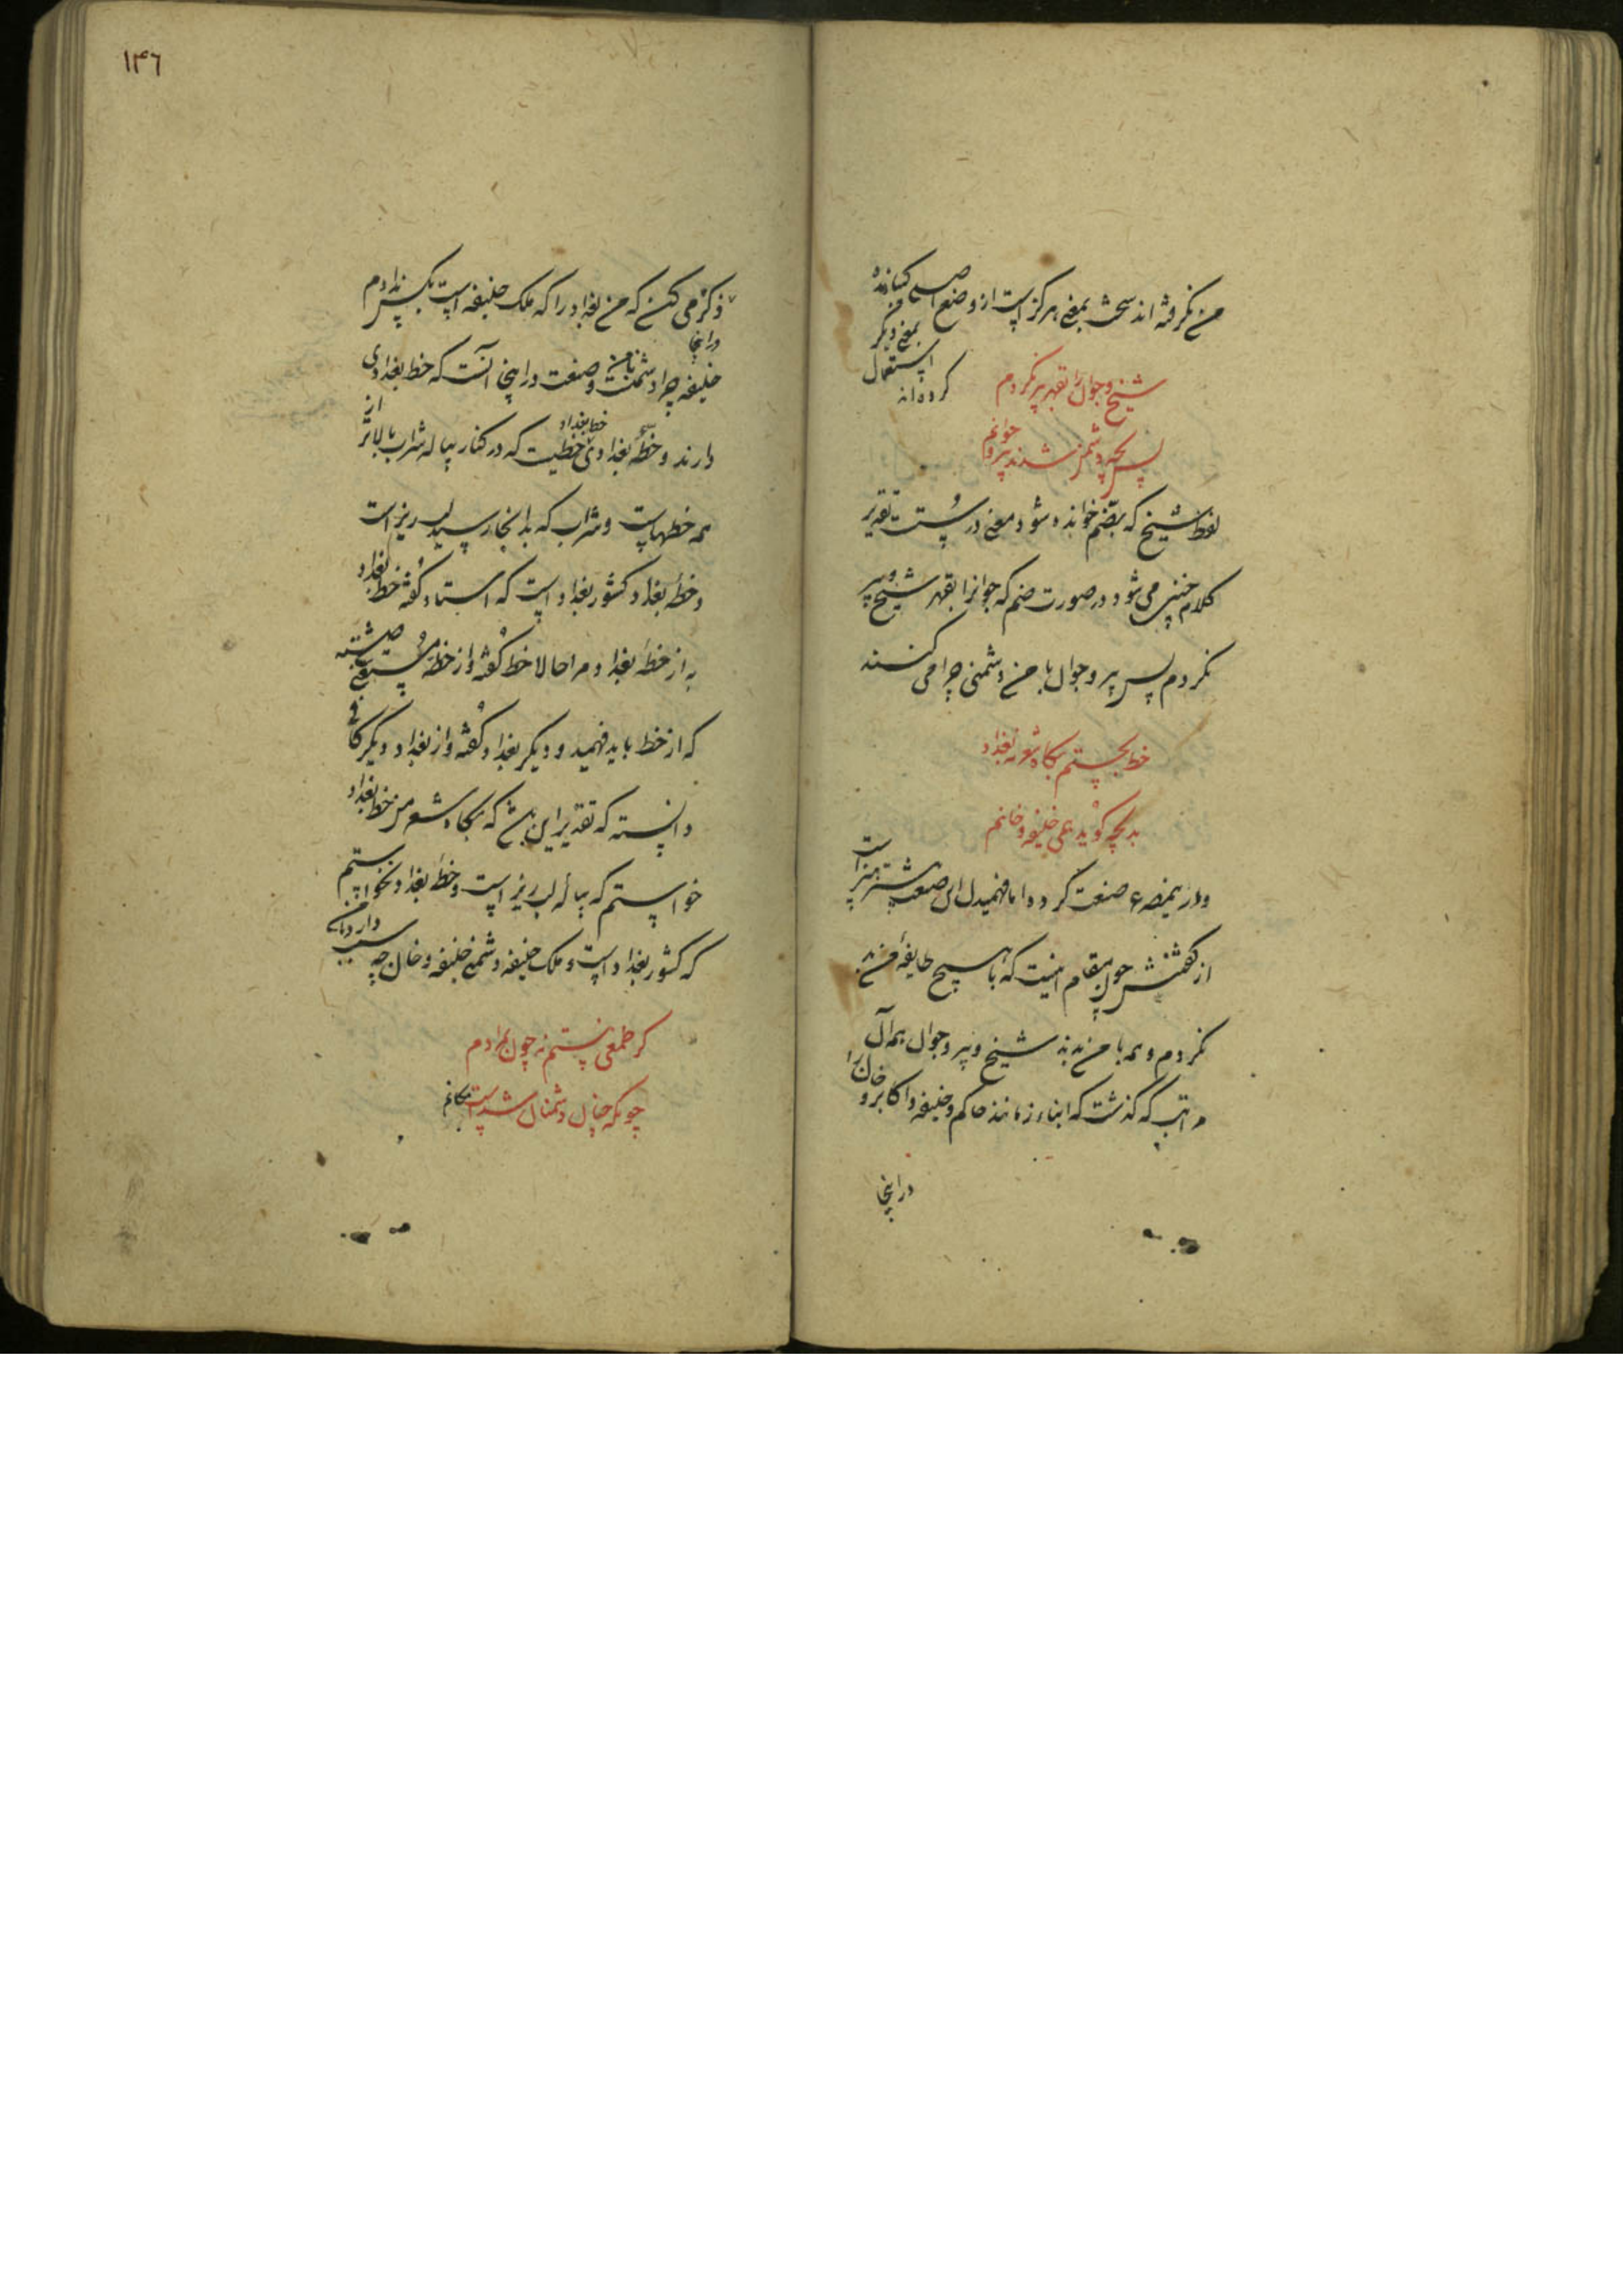 من نگرفته اند سخت بمعنی هرگز است از وضع اصلی
بمعنی دیگر
استعمال
کرده‌اند
شیخ و جوان را بقهر پیر نکردم
پس بچه دشمن شدند پیر و جوانم
لفظ شیخ که بضم خوانده شود معنی درست تقدیر
کلام چنین می شود در صورت ضم که جوانرا بقهر شیخ و پیر
نکردم پس پیر و جوان با من دشمنی چرا می کنند
خط بجستم بگاه شعر نه بغداد
بد بچه گوید همی خلیفه و خانم
و در صنعت کرده اما فهمیدن این صنعت
از گفتنش چون مقام اینست که با هیچ طایفه من بد
نکردم و همه با من بدند شیخ و پیر و جوان همه آن
مراتب که گذشت که ابناء زمانند حاکم و خلیفه و اکابر و خان را
در اینجا
۱۴۶
ذکر می کنی که من بغداد را که ملک خلیفه است بکس ندادم
خلیفه چرا دشمنست با من و صنعت در اینجا آنست که خط بغدادی
دارند و خطهٔ بغداد و خط بغداد خطیست که در کنار پیاله شراب بالاتر از
همه خطهاست و شراب که بدانجا رسید لبریز است
و خطهٔ بغداد کشور بغداد است که استاد گفته خط بغداد
به از خطهٔ بغداد مرا حالا خط گفته و از خطه
که از خط باید فهمید و دیگر بغداد گفته و از بغداد دیگر
دانسته که تقدیر این باشد که بگاه شعر من خط بغداد
خواستم که پیاله لبریز است و خطهٔ بغداد نخواستم
که کشور بغداد است و ملک خلیفه دشمنی خلیفه و خان چه سبب دارد
گر طمعی نیستم نه چون بمرادم
چونکه چنان دشمنان شد است